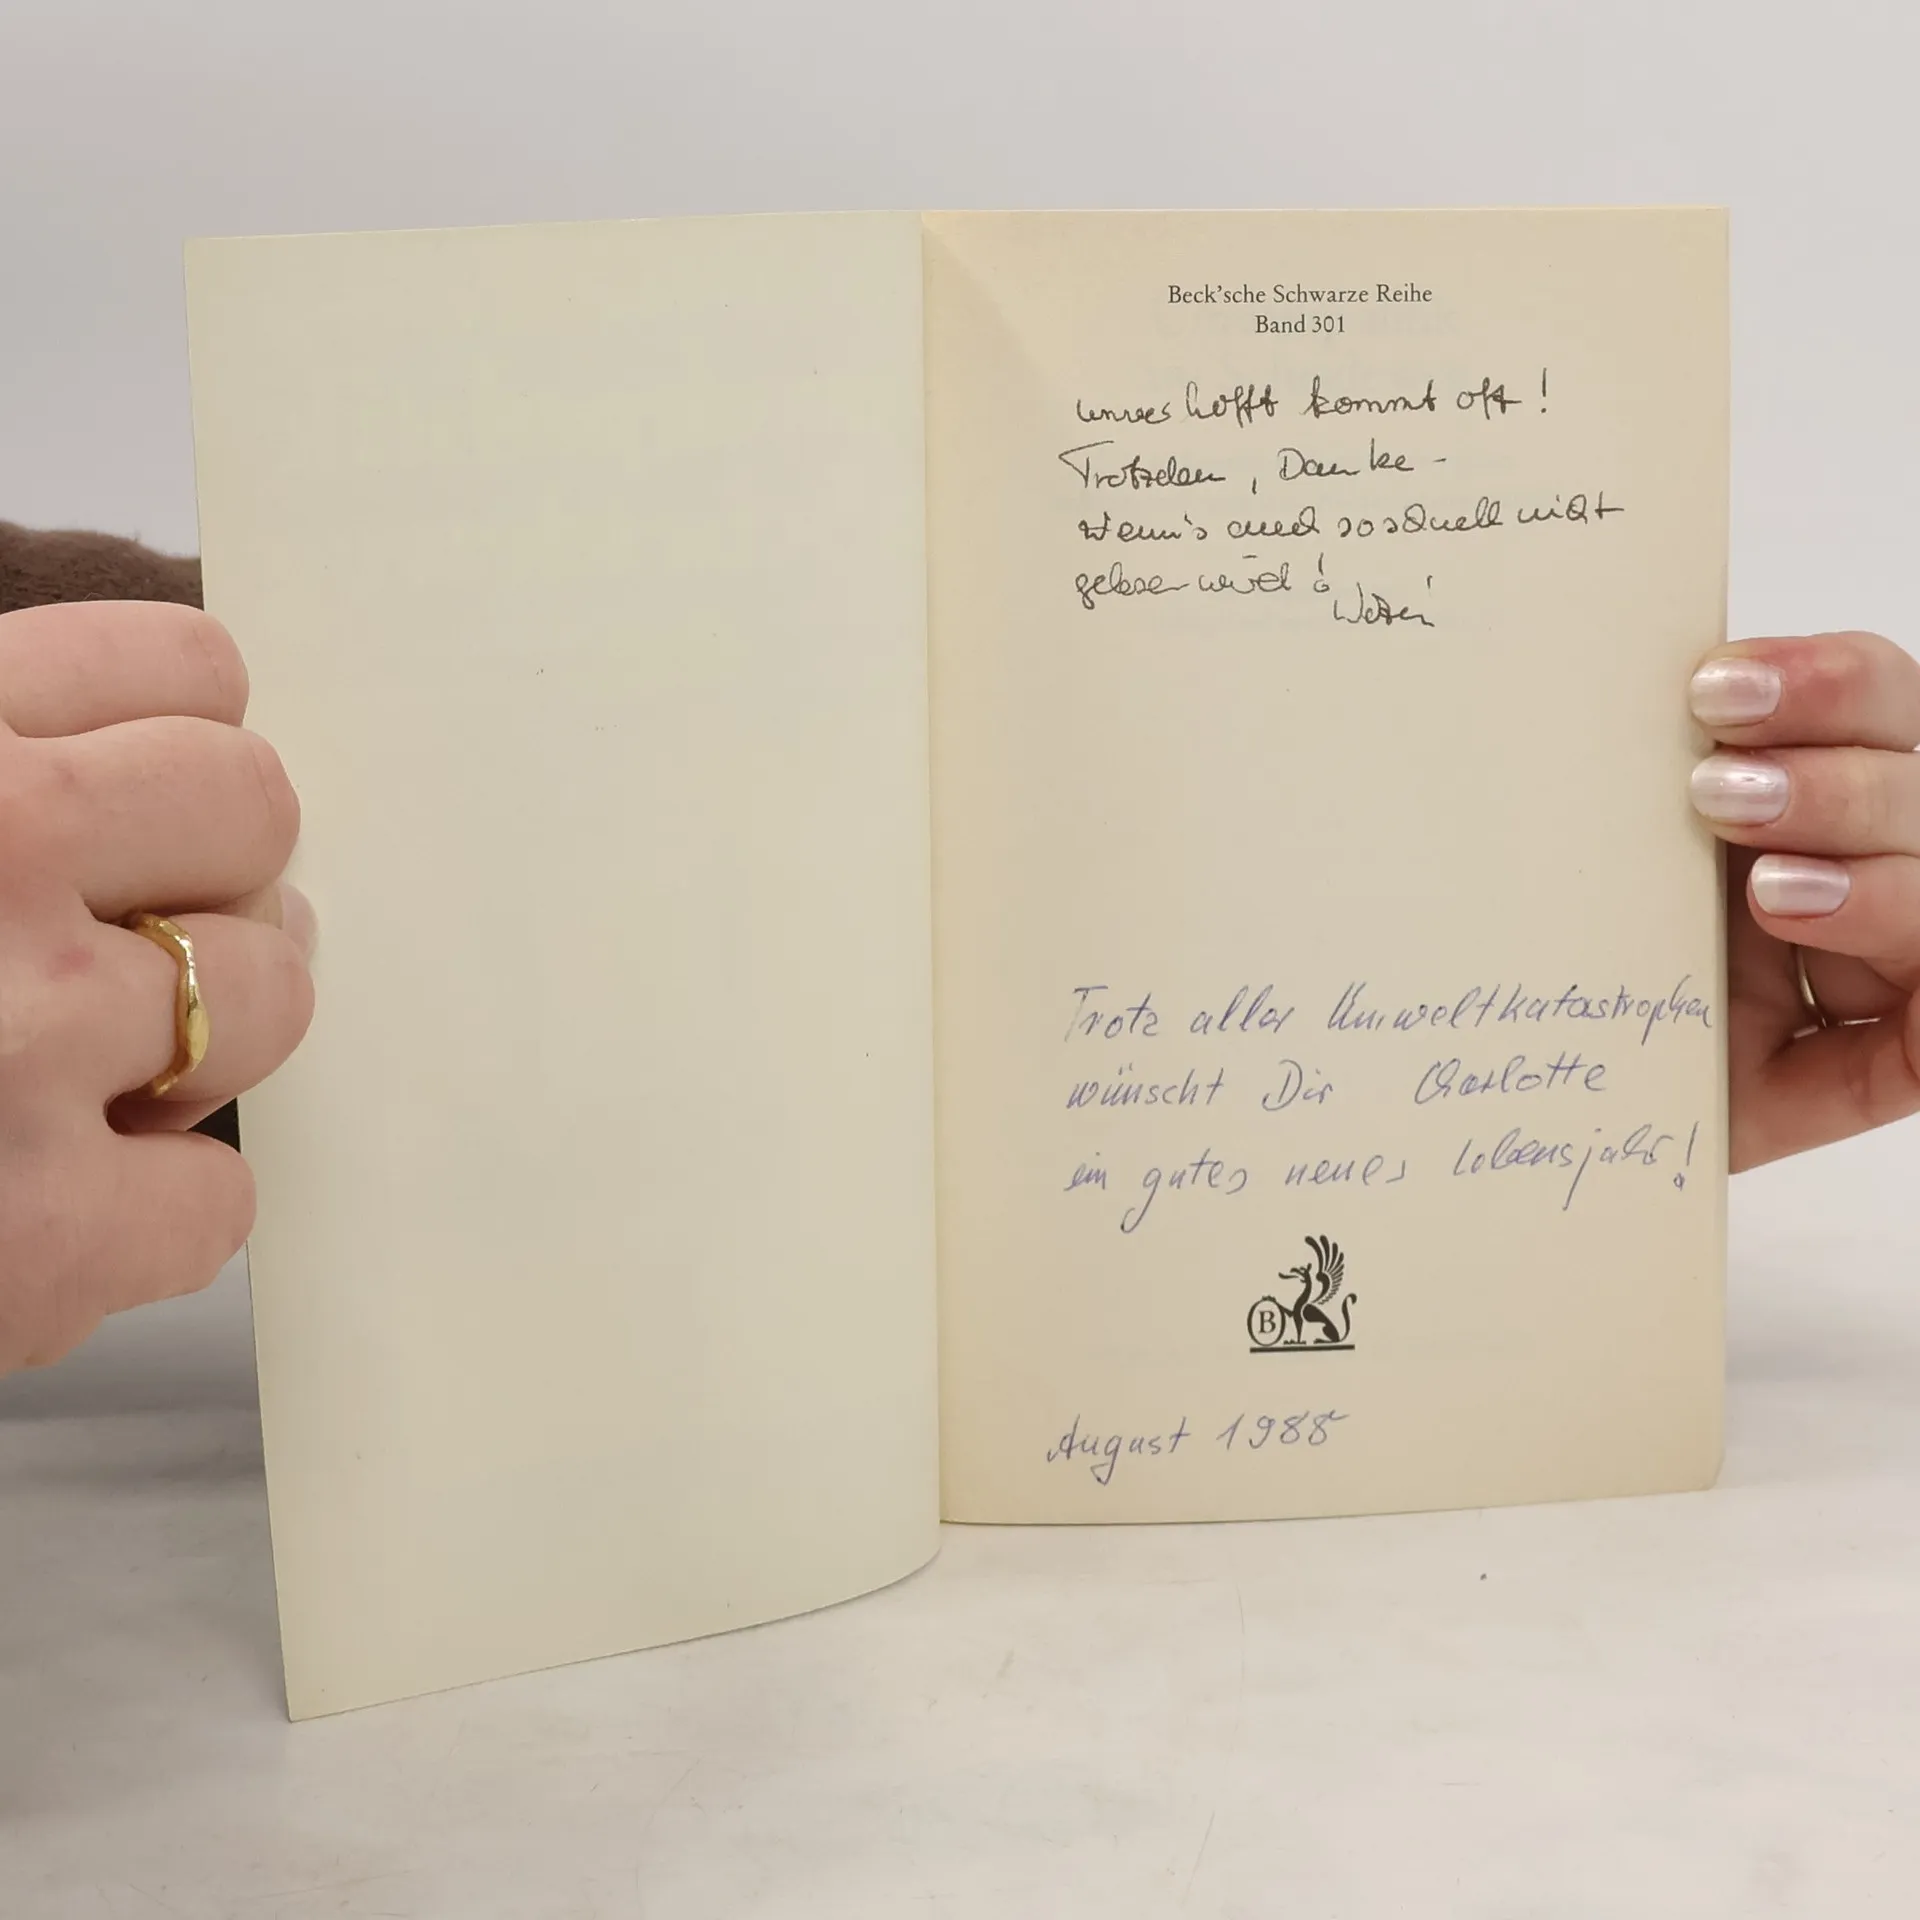 Beck'sche Schwarze Reihe
Band 301
unverhofft kommt oft!
Trotzdem, Danke -
wenn's auch so schnell nicht
gelesen wird!
Trotz aller Umweltkatastrophen
wünscht Dir Charlotte
ein gutes neues Lebensjahr!
B
August 1988